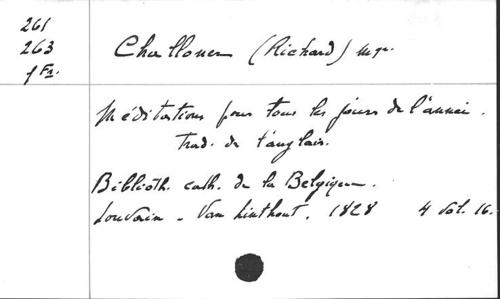 261
263
1 Fr.
Challoner (Richard) mgr.
Méditations pour tous les jours de l'année.
Trad. de l'anglais.
Biblioth. cath. de la Belgique.
Louvain - Vanlinthout, 1828 4 vol. 16.